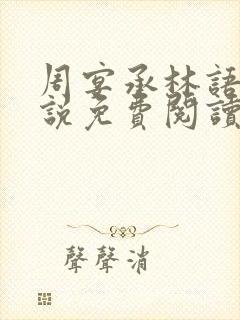 周宴承林語
說免費閱讀
聲聲消